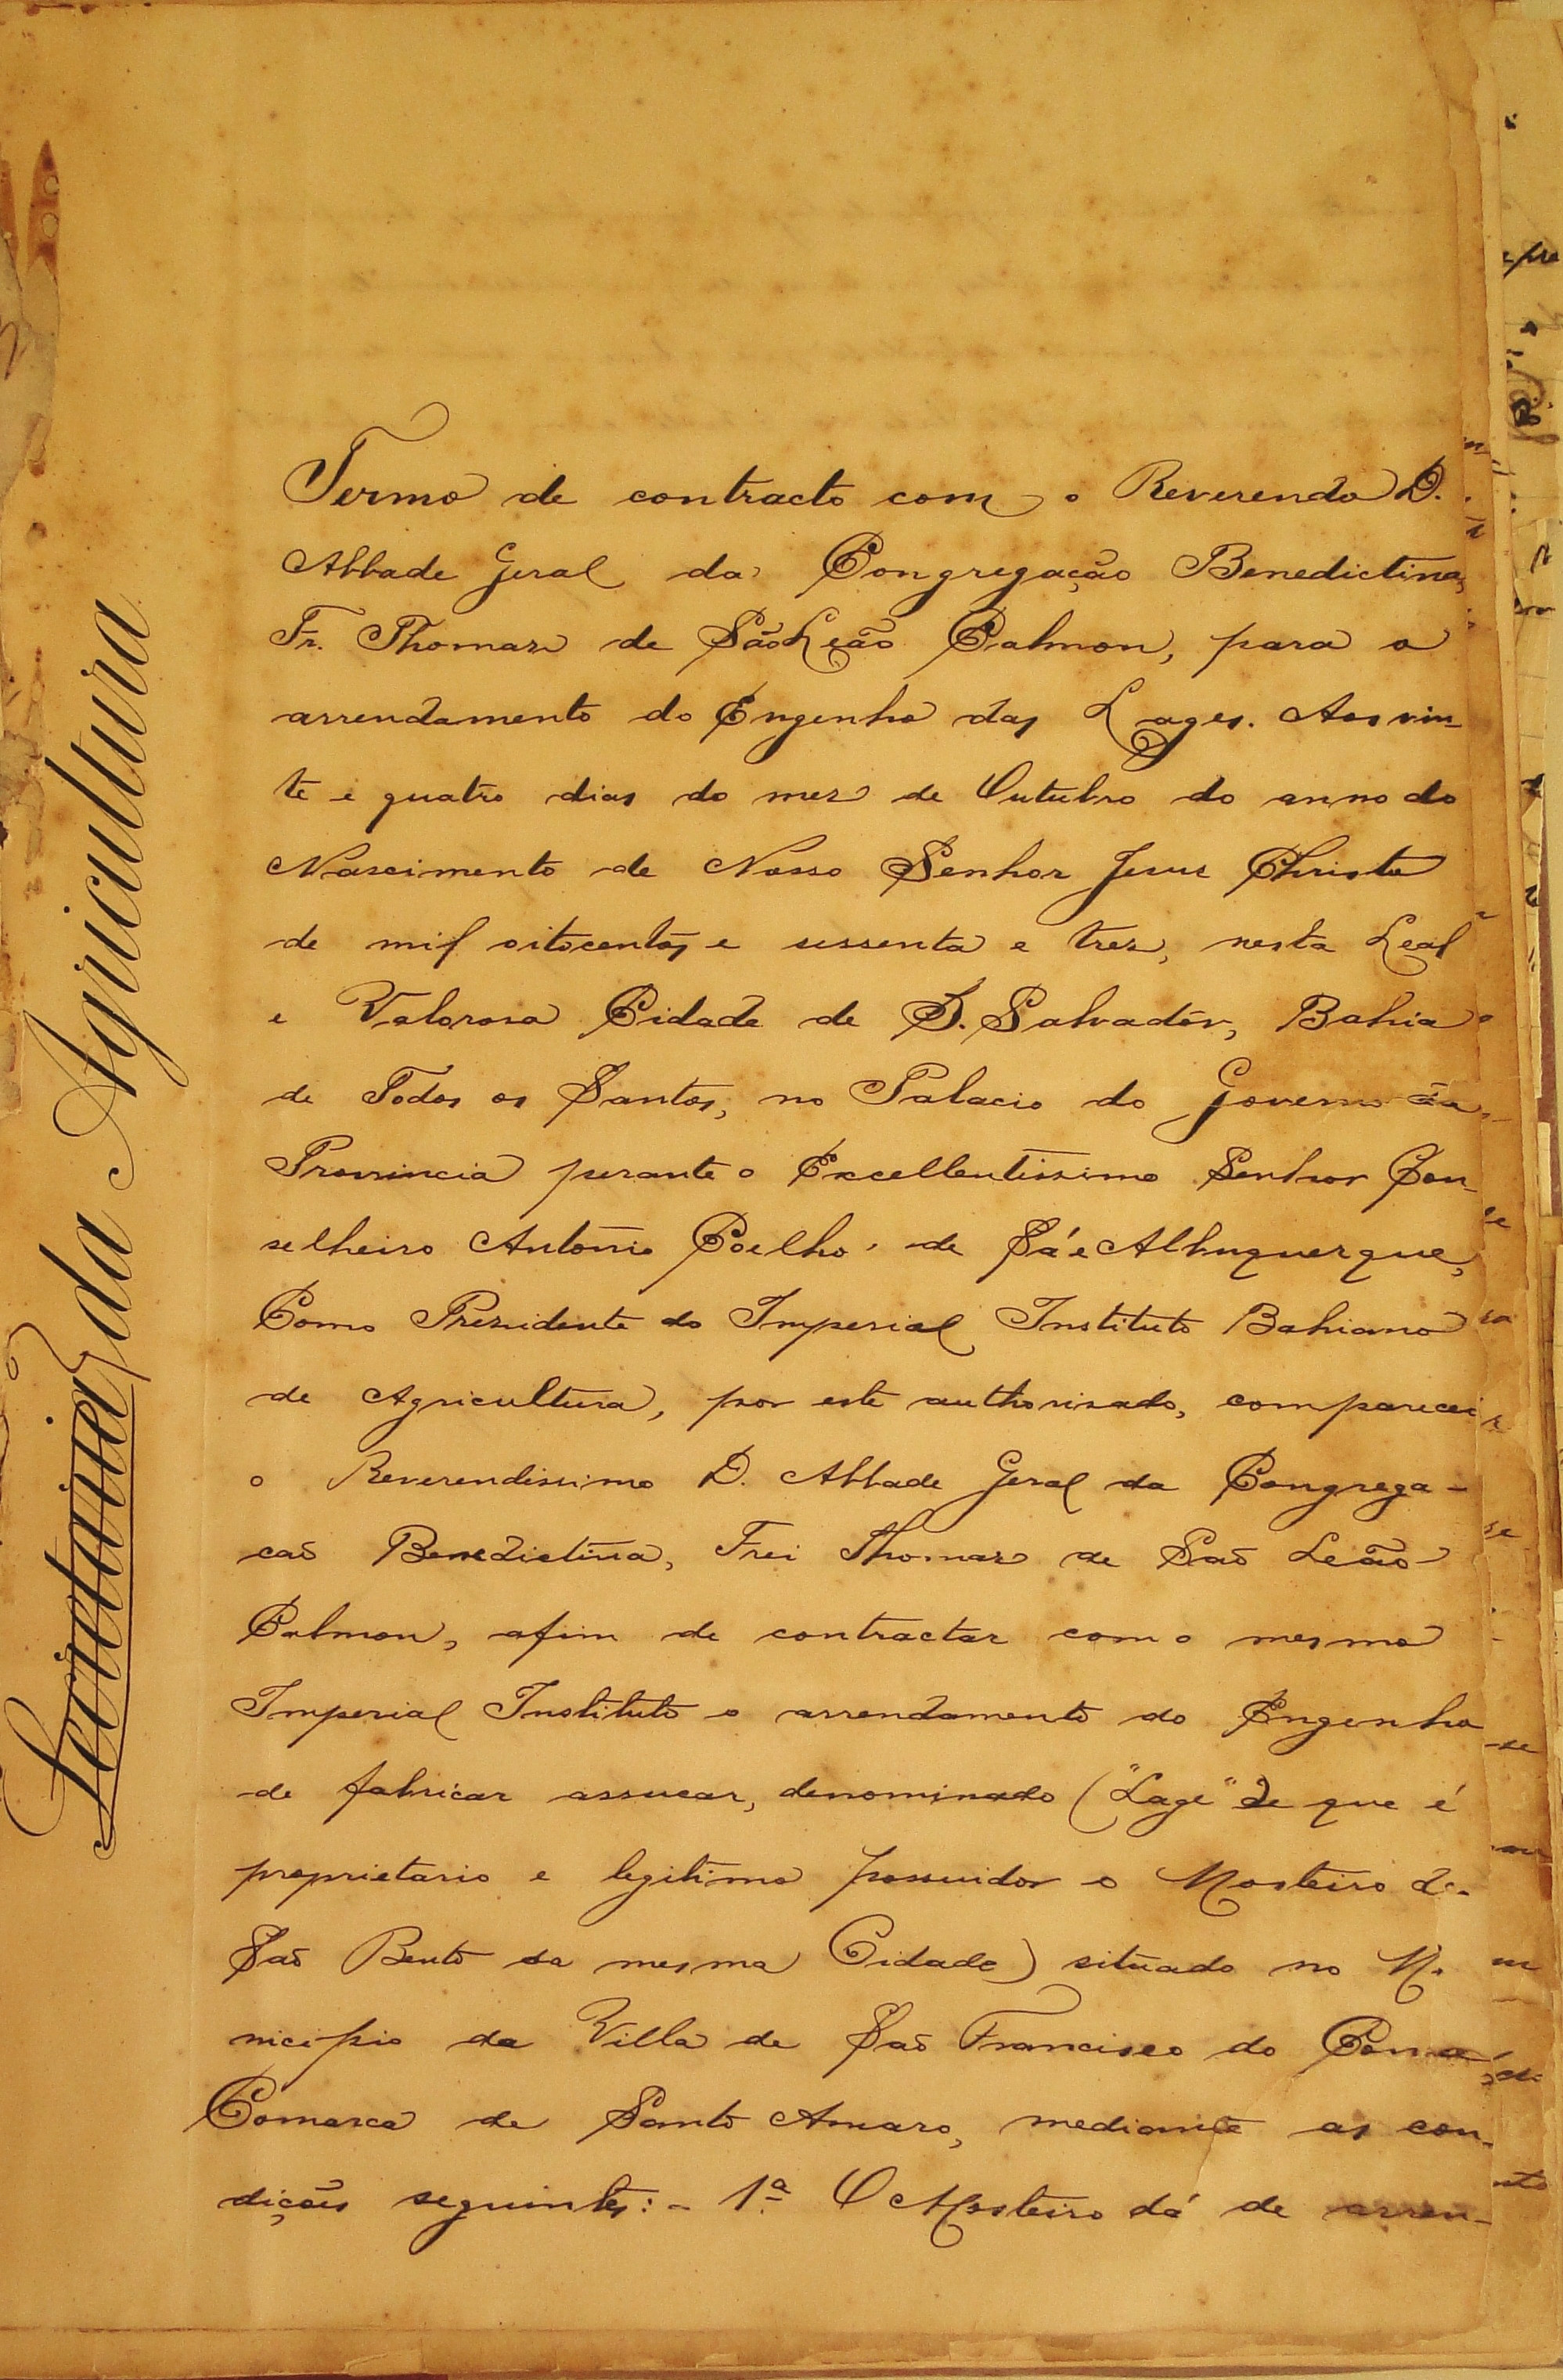 Termo de contracto com o Reverendo D.
Abbade Geral da Congregação Benedictina,
Fr. Thomaz de São Leão Calmon, para o
arrendamento do Engenho das Lages. Aos vin-
te e quatro dias do mez de Outubro do anno do
Nascimento de Nosso Senhor Jesus Christo
de mil oitocentos e sessenta e trez, nesta Leal
e Valorosa Cidade de S. Salvadôr, Bahia
de Todos os Santos, no Palacio do Governo da
Provincia perante o Excellentissimo Senhor Con-
selheiro Antonio Coelho de Sá e Albuquerque,
Como Prezidente do Imperial Instituto Bahiano
de Agricultura, por este authorisado, compareceu
o Reverendissimo D. Abbade Geral da Congrega-
caõ Benedictina, Frei Thomaz de Saõ Leão
Calmon, afim de contractar com o mesmo
Imperial Instituto o arrendamento do Engenho
de fabricar assucar, denominado ("Lage" de que é
proprietario e legitimo possuidor o Mosteiro de
Saõ Bento da mesma Cidade) situado no M.
nicipio da Villa de Saõ Francisco do
Comarca de Santo Amaro, mediante as con-
dições seguintes: - 1ª O Mosteiro dá de arren-
Secretaria da Agricultura